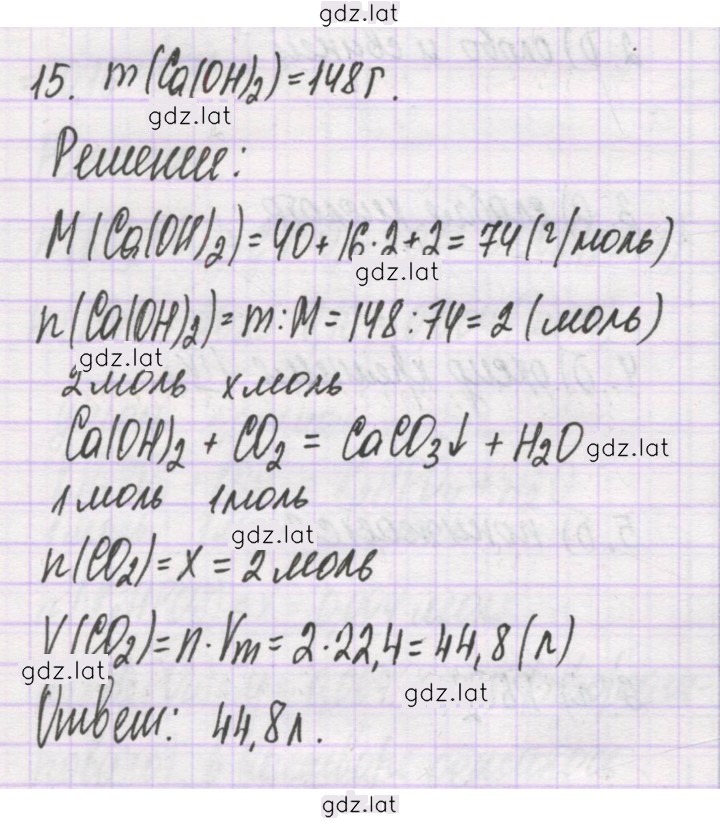 gdz.lat
15. m(Ca(OH)₂)=148г.
gdz.lat
Решение:
M(Ca(OH)₂)=40+16·2+2=74(г/моль)
gdz.lat
n(Ca(OH)₂)=m:M=148:74=2(моль)
gdz.lat
2моль xмоль
Ca(OH)₂+CO₂=CaCO₃↓+H₂O
gdz.lat
1моль 1моль
gdz.lat
n(CO₂)=x=2моль
V(CO₂)=n·Vm=2·22,4=44,8(л)
gdz.lat
gdz.lat
Ответ: 44,8л.
gdz.lat